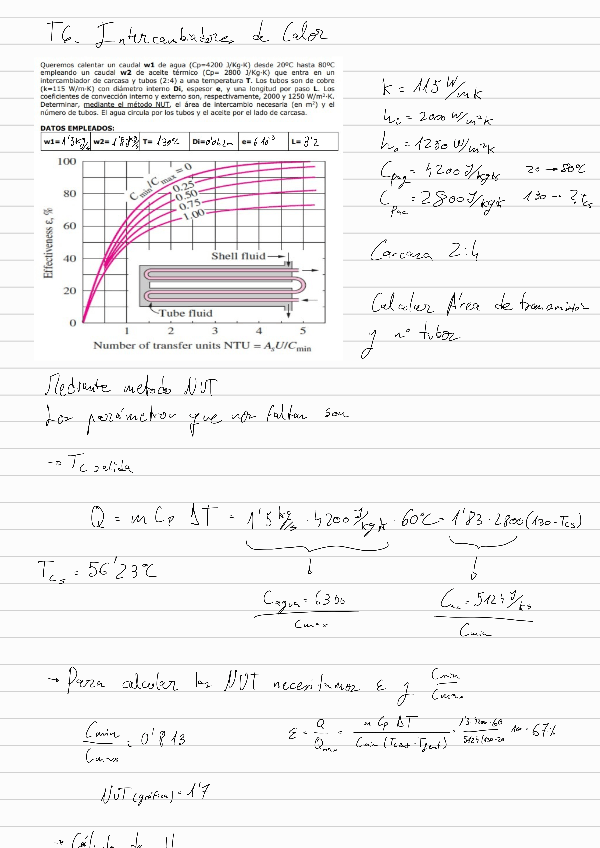 T6. Intercambiadores de Calor
Queremos calentar un caudal w1 de agua (Cp=4200 J/Kg·K) desde 20ºC hasta 80ºC
empleando un caudal w2 de aceite térmico (Cp= 2800 J/Kg·K) que entra en un
intercambiador de carcasa y tubos (2:4) a una temperatura T. Los tubos son de cobre
(k=115 W/m·K) con diámetro interno Di, espesor e, y una longitud por paso L. Los
coeficientes de convección interno y externo son, respectivamente, 2000 y 1250 W/m²·K.
Determinar, mediante el método NUT, el área de intercambio necesaria (en m²) y el
número de tubos. El agua circula por los tubos y el aceite por el lado de carcasa.
DATOS EMPLEADOS:
w1= 1'5 kg/s w2= 1'83 kg/s T= 130ºC Di= e= 6·10⁻³ L= 3'2
k = 115 W/mK
hi = 2000 W/m²K
ho = 1250 W/m²K
Cp ag = 4200 J/kgK 20 → 80ºC
Cp ac = 2800 J/kgK 130 → ? Tcs
Carcasa 2:4
Calcular Área de transmisión
y nº tubos
100
80
60
40
20
0
Effectiveness ε, %
Cmin/Cmax = 0
0.25
0.50
0.75
1.00
Shell fluid
Tube fluid
1 2 3 4 5
Number of transfer units NTU = AsU/Cmin
Mediante metodo NUT
Los parámetros que nos faltan son
→ Tc salida
Q = m Cp ΔT = 1'5 kg/s · 4200 J/kgK · 60ºC = 1'83 · 2800 (130 - Tcs)
Tcs = 56'23ºC
Cagua = 6300
Cmax
Cac = 5124 J/
Cmin
→ Para calcular los NUT necesitamos ε y Cmin/Cmax
Cmin/Cmax = 0'813
ε = Q/Qmax = m Cp ΔT / Cmin (Tcent - Tfent) = 1'5·4200·60 / 5124(130-20) · 100 = 67%
NUT (gráfica) = 1'7
→ Cálculo de U